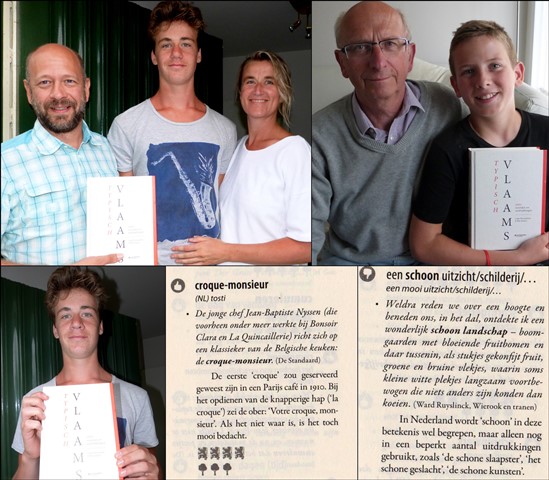 TYPISCH
VLAAMS
TYPISCH
VLAAMS
TYPISCH
VLAAMS
croque-monsieur
(NL) tosti
• De jonge chef Jean-Baptiste Nyssen (die
voorheen onder meer werkte bij Bonsoir
Clara en La Quincaillerie) richt zich op
een klassieker van de Belgische keuken:
de croque-monsieur. (De Standaard)
De eerste ‘croque’ zou geserveerd
geweest zijn in een Parijs café in 1910. Bij
het opdienen van de knapperige hap (‘la
croque’) zei de ober: ‘Votre croque, mon-
sieur’. Als het niet waar is, is het toch
mooi bedacht.
een schoon uitzicht/schilderij/…
een mooi uitzicht/schilderij/…
• Weldra reden we over een hoogte en
beneden ons, in het dal, ontdekte ik een
wonderlijk schoon landschap – boom-
gaarden met bloeiende fruitbomen en
daar tussenin, als stukjes gekonfijt fruit,
groene en bruine vlekjes, waarin soms
kleine witte plekjes langzaam voortbe-
wogen die niets anders zijn konden dan
koeien. (Ward Ruyslinck, Wierook en tranen)
In Nederland wordt ‘schoon’ in deze
betekenis wel begrepen, maar alleen nog
in een beperkt aantal uitdrukkingen
gebruikt, zoals ‘de schone slaapster’, ‘het
schone geslacht’, ‘de schone kunsten’.